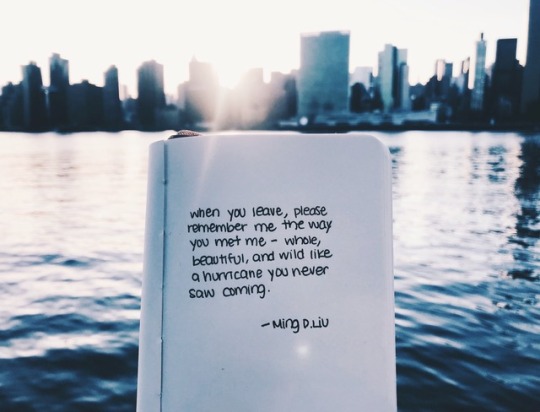 when you leave, please
remember me the way
you met me - whole,
beautiful, and wild like
a hurricane you never
saw coming.
- Ming D. Liu